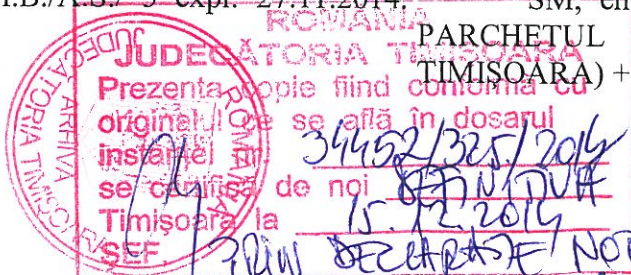 I.B./A.S./ 5 expl. 27.11.2014. SM, em
PARCHETUL
TIMIȘOARA) +
ROMÂNIA
JUDECĂTORIA TIMIȘOARA
Prezenta copie fiind conformă cu
originalul ce se află în dosarul
instanței nr. 34452/325/2014
se certifică de noi DEFINITIVĂ
Timișoara la 15.12.2014
ȘEF, PRIN DECLARAȚIE NOT
JUDECĂTORIA TIMIȘOARA
ARHIVA
ROMÂNIA